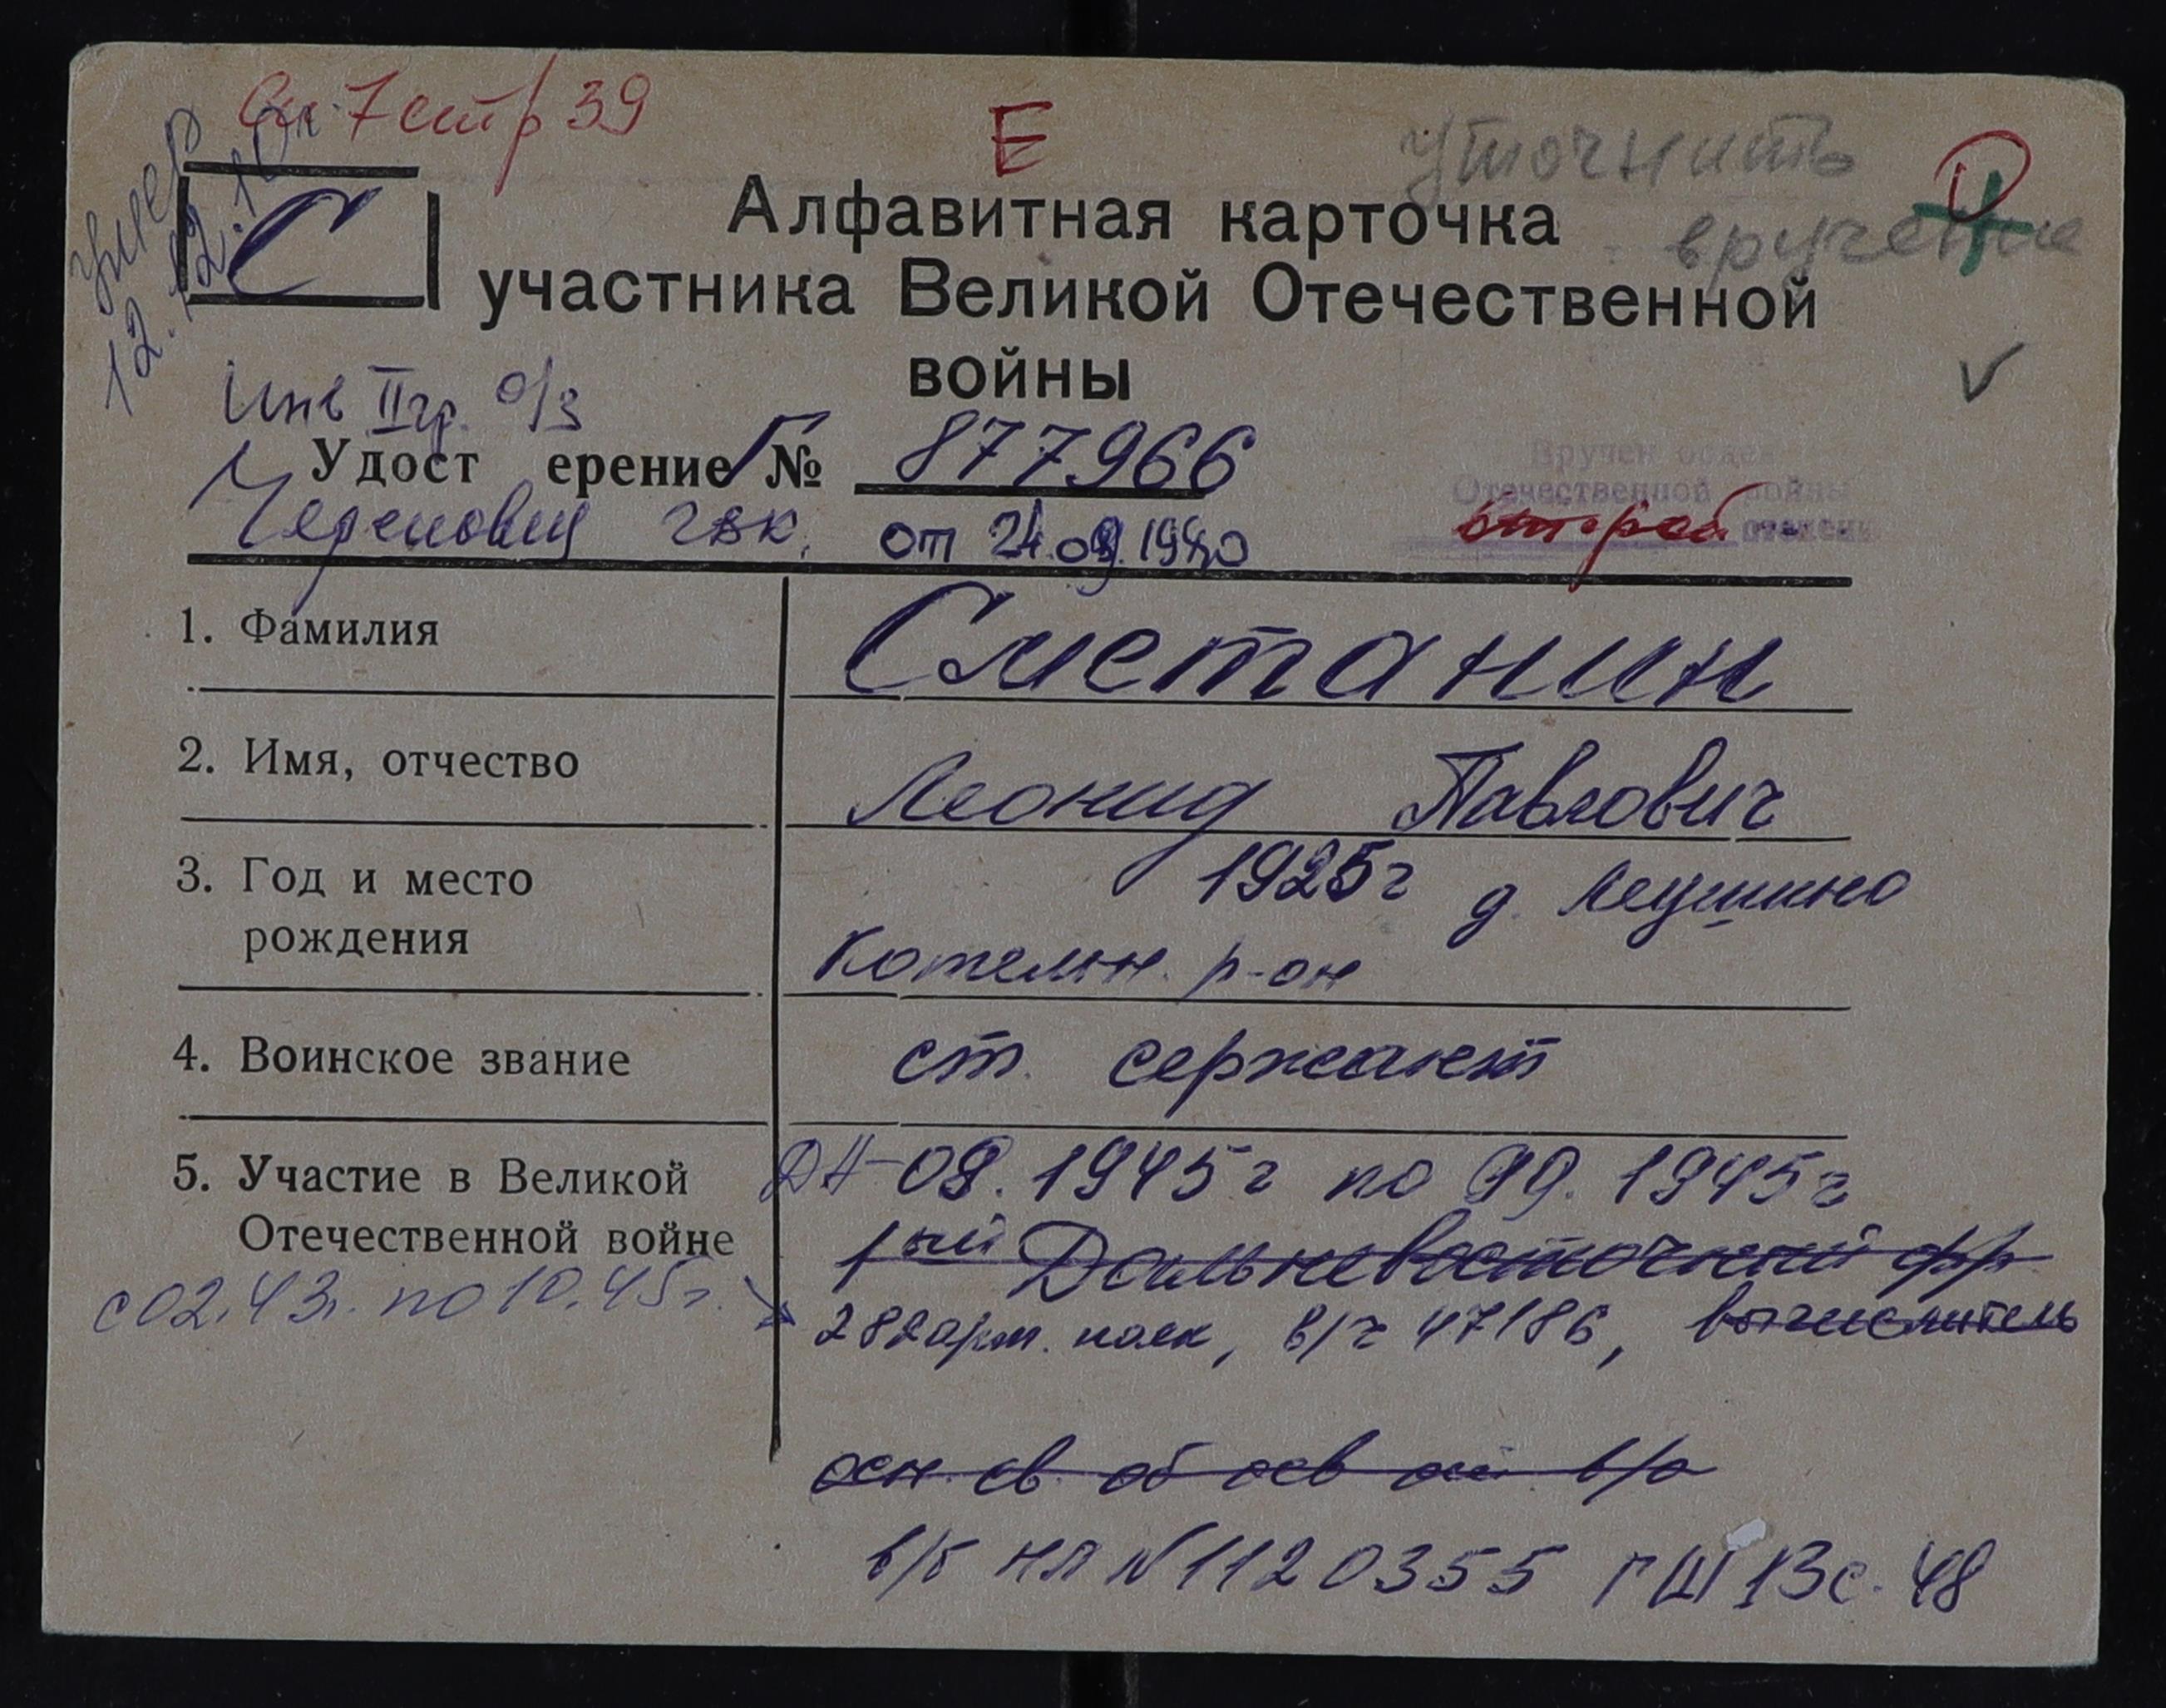 Сп 7 стр 39
Е
уточнить
вручение
умер
12.12.10г.
С
Алфавитная карточка
участника Великой Отечественной
войны
Инв II гр. о/з
Удост ерение Г № 877966
Череповец гвк. от 24.09.1980
Вручен орден
Отечественной войны
второй степени
1. Фамилия
Сметанин
2. Имя, отчество
Леонид Павлович
3. Год и место
рождения
1925г д. Леушино
Котельн. р-он
4. Воинское звание
ст. сержант
5. Участие в Великой
Отечественной войне
ДА 08.1945г по 09.1945г
1ый Дальневосточный фр
с 02.43г. по 10.45г.
282 арт. полк, в/ч 47186, вычислитель
осн. св. об осв от в/о
в/б НЛ N1120355 ГШ 13 с. 48